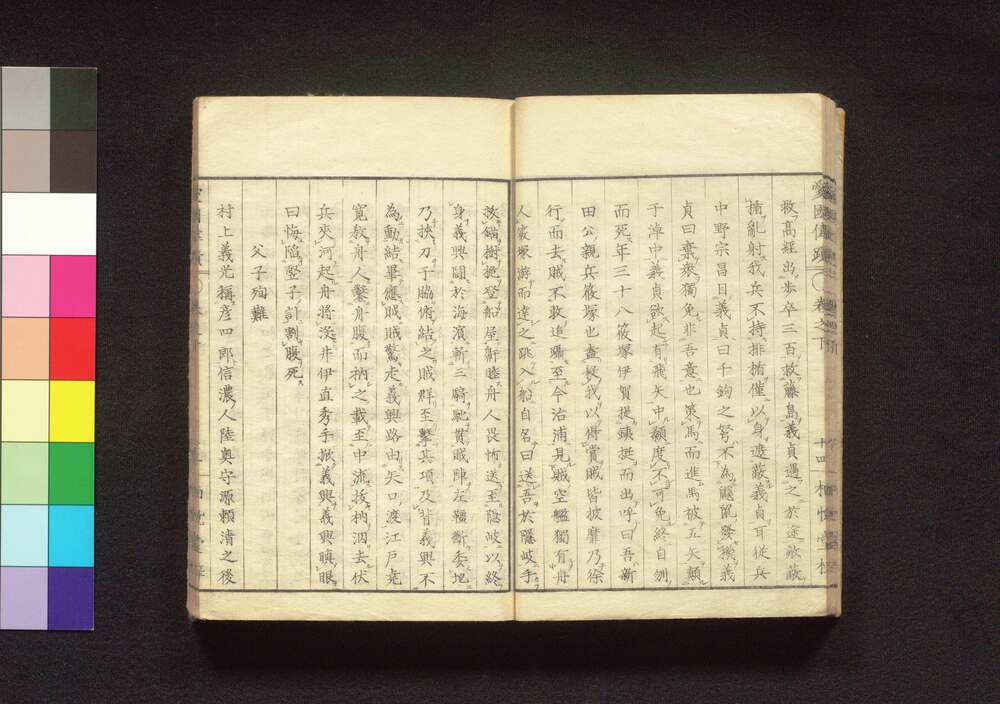 救高経出歩卒三百救藤島義貞遇之於途敵蔽
楯乱射我兵不持排楯僅以身遮蔽義貞耳従兵
中野宗昌目義貞曰千鈞之弩不為鼷鼠發機義
貞曰棄衆獨免非吾意也策馬而進馬被五矢顛
于淖中義貞欲起有飛矢中額度不可免終自刎
而死年三十八篠塚伊賀提鋏挺而出呼曰吾新
田公親兵篠塚也盍投我以得賞賊皆披靡乃徐
行而去賊不敢追躡至今治浦見賊空艦獨有舟
人篠塚游而達之跳入船自名曰送吾於隠岐手
抜錨樹桅登船屋鼾睡舟人畏怖送至隠岐以終
身義興闘於海濱斬三騎馳貫賊陣左韁断委地
乃挟刀于脇俯結之賊群至撃其項及背義興不
為動結畢應賊賊驚走義興路由矢口渡江戸堯
寛教舟人鑿舟腹而枘之載至中流抜枘泅去伏
兵夾河起舟將沈井伊直秀手掀義興義興瞋眼
曰悔陷竪子計割腹死
父子殉難
村上義光稱彦四郎信濃人陸奥守源頼清之後
愛國偉蹟 巻之下 十四